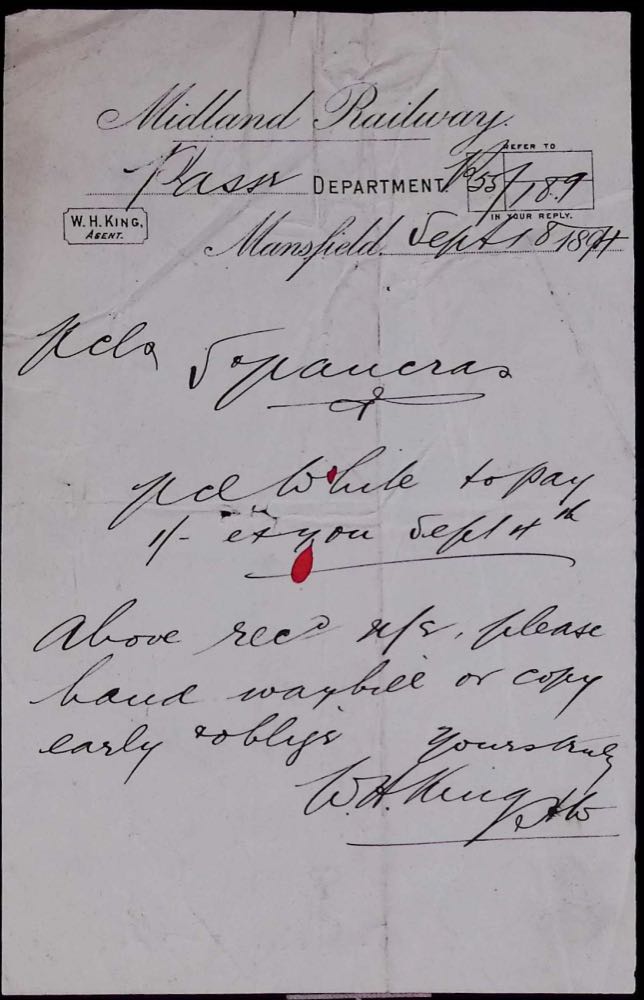 Midland Railway.
REFER TO
Passr DEPARTMENT. P55/189
IN YOUR REPLY.
W. H. KING,
AGENT.
Mansfield, Sept 18 1894
Pcls St pancras
pcl White to pay
1/- ex you Sept 4th
Above recd n/e, please
hand waybill or copy
early & oblige Yours truly
W.H. King